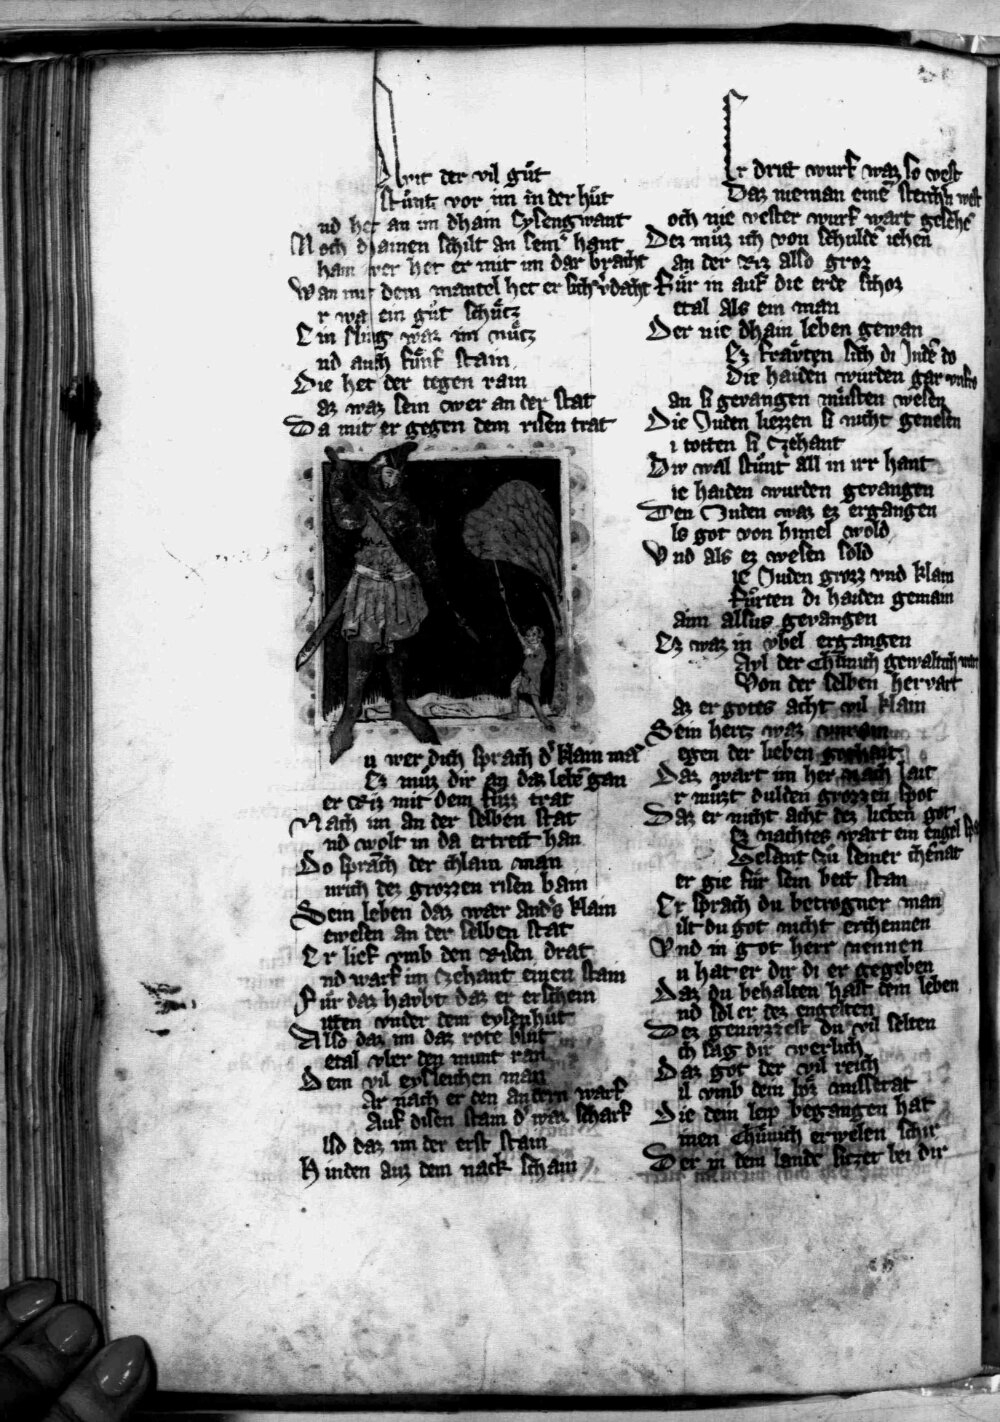 Avit der vil guͤt
stuͤnt vor im in der huͤt
nd het an im dhain Eysengwant
Noch dhainen schilt an seinᵉ hant
hain wer het er mit im dar bracht
Wan mit dem mantel het er sich vᵉdacht
r wa ein guͤt schuͤtz
Ein sling waz im nuͤtz
nd auch fuͤnf stain
Die het der tegen rain
az waz sein wer an der stat
Da mit er gegen dem risen trat
u wer dich sprach dᵉ klain man
Ez muͤz dir an daz lebē gan
er Riz mit dem fuͤzz trat
Nach im an der selben stat
nd wolt in da ertrett han
Do sprach der chlain man
urich dez grozzen risen bain
Sein leben daz waer andᵉs klain
ewesen an der selben stat
Er lief vmb den Risen drat
nd warf im Czehant einen stain
Fuͤr daz haubt daz er erschein
itten vnder dem eysenhuͤt
Also daz im daz rote bluͤt
etal vber den munt ran
Dem vil eysleichen man
Ar nach er den andern warf
Auf disen stain dᵉ waz scharf
lso daz im der erst stain
Hinden auz dem nack schain
Er dritt wurf waz so vest
Daz nieman einē sterchᵉn west
och nie vester wurf wart geschehᵉ
Dez muͤz ich von schuldē iehen
an der Riz also groz
Fuͤr in auf die erde schoz
etal als ein man
Der nie dhain leben gewan
Ez fraͤvten sich di Judē do
Die haiden wurden gar vnfro
an si gevangen muͤsten wesen
Die Juden liezzen si nicht genesen
i totten si Czehant
Div wal stuͤnt all in irr hant
ie haiden wurden gevangen
Den Juden waz ez ergangen
ls got von himel wold
Vnd als ez wesen sold
ie Juden grozz vnd klain
Fuͤrten di haiden gemain
aim allsus gevangen
Ez waz in vbel ergangen
Ayl der Chuͤnich gewaltich wart
Von der selben hervart
az er gotes acht vil klain
Sein hertz waz vnrain
egen der lieben
Daz wart im her nach lait
r muͤzt dulden grozzen spot
Daz er nicht acht dez lieben got
Ez nachtes wart ein engel
Gesant Czuͤ seiner chēnat
er gie fuͤr sein bett stan
Er sprach du betrogner man
ilt du got nicht erchennen
Vnd in got herr nennen
u hat er dir di er gegeben
Daz du behalten hast dein leben
nd sol er dez engelten
Dez genivzzest du vil selten
ch sag dir werlich
Daz got der vil reich
il vmb dein boͤz missetat
Die dein leip begangen hat
inen Chuͤnich erwelen schir
Der in dem lande sitzet bei dir